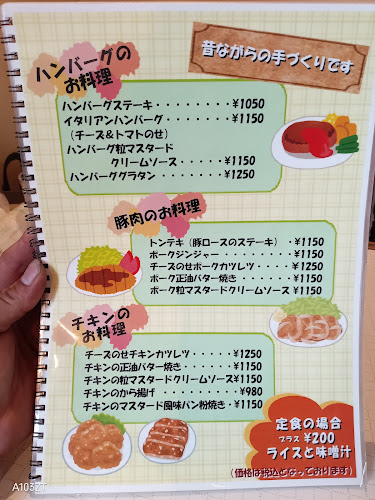 昔ながらの手づくりです
ハンバーグの
お料理
ハンバーグステーキ・・・・・・・・¥1050
イタリアンハンバーグ・・・・・・・¥1150
(チーズ&トマトのせ)
ハンバーグ粒マスタード
クリームソース・・・・¥1150
ハンバーググラタン・・・・・・・・¥1250
豚肉のお料理
トンテキ(豚ロースのステーキ)・¥1150
ポークジンジャー・・・・・・・・¥1150
チーズのせポークカツレツ・・・・¥1250
ポーク正油バター焼き・・・・・・¥1150
ポーク粒マスタードクリームソース ¥1150
チキンの
お料理
チーズのせチキンカツレツ・・・・・・¥1250
チキンの正油バター焼き・・・・・・¥1150
チキンの粒マスタードクリームソース¥1150
チキンのから揚げ・・・・・・・・・¥980
チキンのマスタード風味パン粉焼き・¥1150
定食の場合
プラス ¥200
ライスと味噌汁
(価格は税込となっております)
A103ZT